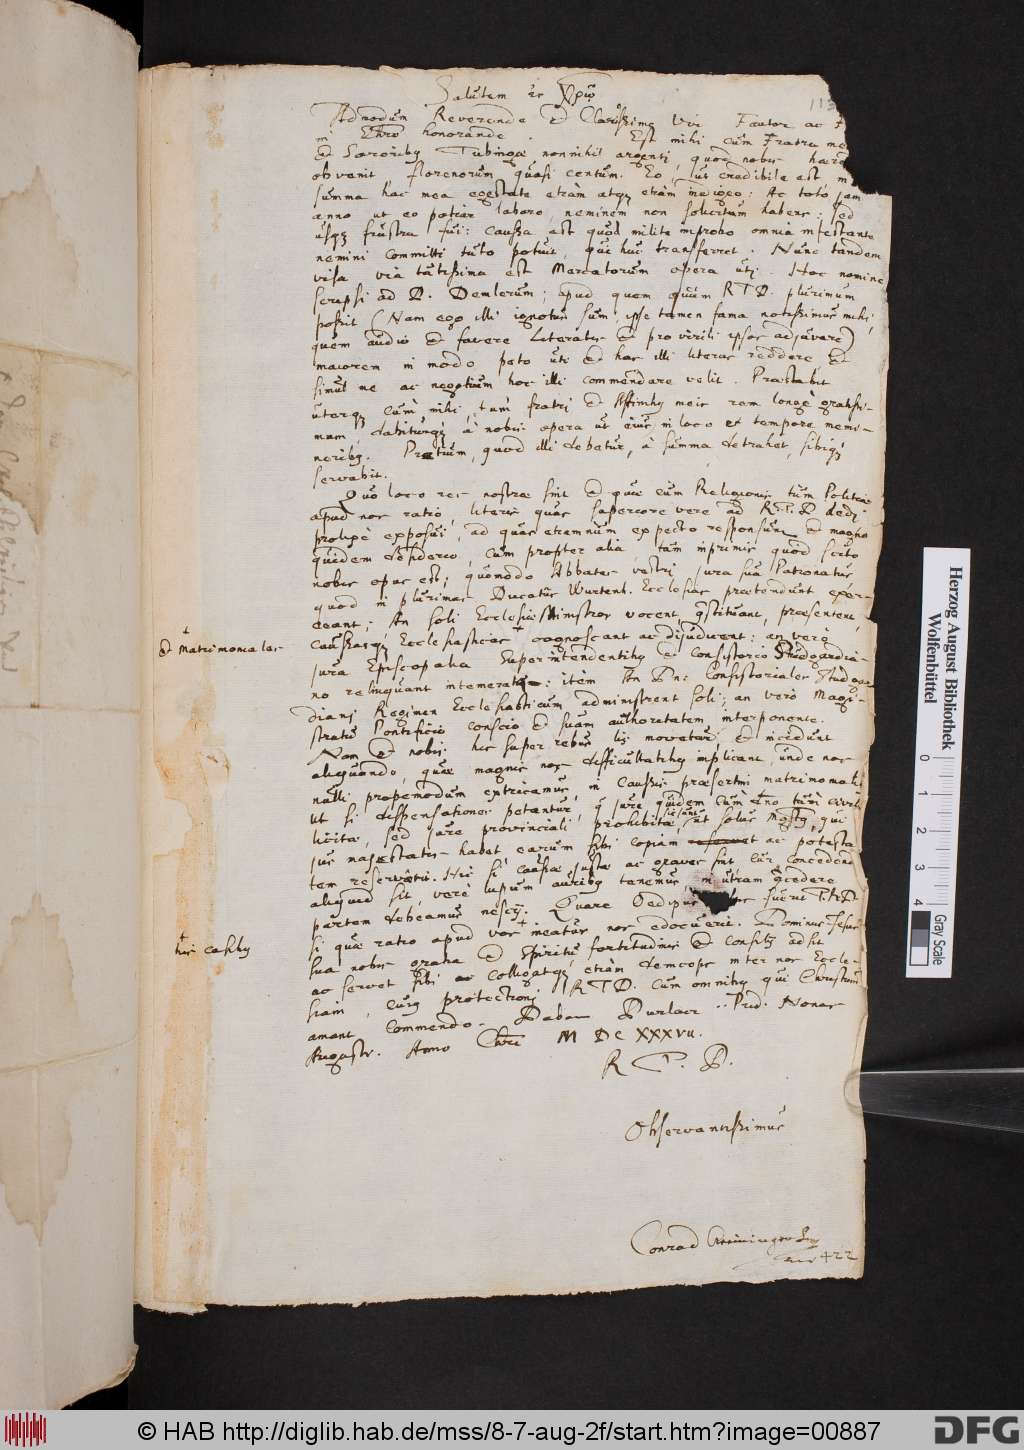 Salutem in Χρῳ̃
113
Admodum Reverende et Clarissime Vir Fautor ac
in Chro honorande. Est mihi cum Fratre me
et Sororibus Tubingæ nonnihil argenti, quod nobis hær
obvenit florenorum quasi centum. Eo, ut credibile est
summa hac mea egestate etiam atque etiam indigeo: Ac toto jam
anno ut eo potiar laboro, neminem non solicitum habens: sed
usque frustra fui: caussa est quod milite improbo omnia infestante
nemini committi tuto potuit, qui huc transferret. Nunc tandem
visa via tutissima est Mercatorum opera uti. Hoc nomine
scripsi ad D. Demlerum; apud quem quum RTD. plurimum
possit (Nam ego illi ignotus sum, ipse tamen fama notissimus mihi,
quem audio et favere Literatis et pro virili ipsos adjuvare)
maiorem in modo peto uti et has illi literas reddere et
simul me ac negotium hoc illi commendare velit. Præstabit
uterque cum mihi, tum fratri et Affinibus meis rem longe gratissi-
mam, dabiturque a nobis opera ut eius in loco et tempore memi-
neribus. Pretium, quod illi debetur, a summa detrahet, sibique
servabit.
Quo loco res nostræ sint et quæ cum Religionis tum Politiæ
apud nos ratio, literis quas superiore vere ad R.T.D dedi
prolixe exposui, ad quas etiamnum expecto responsum et magno
quidem desiderio, cum propter alia, tum inprimis quod scito
nobis opus est; quomodo Abbates vestri jura sua Patronatus
quod in plurimas Ducatus Wurtenb. Ecclesias prætendunt exer-
ceant; An soli Ecclesiis Ministros vocent, constituant, præsentent
et matrimoniales
caussasque Ecclesiasticas + cognoscant ac dijudicent: an vero
jura Episcopalia Superintendentibus et Consistorio Studgardia-
no relinquant intemerata: item An Dn: Consistoriales Studgar-
diani Regimen Ecclesiasticum administrent soli; an vero Magi-
stratus Pontificii conscio et suam authoritatem interponente.
Nam et nobis his super rebus lis movetur, et incidunt
aliquando, quæ magnis nos difficultatibus implicant, unde nos
nulli propemodum extricamus, in caussis præsertim matrimonialib
ut si dispensationes petantur, quæ jure quidem cum Dno tum civili
licitæ, sed jure provinciali prohibitæ sunt, ut solus Magistr, qui
jus majestatis habet earum sibi copiam ac potesta-
tem reservarit. Hic si caussæ justæ ac graves sint cur concedend
his casibus
aliquid sit, vere lupum auribus tenemus in utram concedere
partem debeamus nescij. Quare Oedipus fuerit T.R.D.
si quæ ratio apud vos + ineatur nos edocuerit. Dominus Jesus
sua nobis gratia et Spiritu fortitudinis et consilij adsit
ac servet sibi ac colligatque etiam deinceps inter nos Eccle-
siam, cuius protectioni RTD. cum omnibus qui Christum
amant commendo. Dabam Burlaci .. Prid. Nonas
Augusti. Anno Chri M DC XXXVII.
R T. D.
Observantissimus
Conrad
422
Herzog August Bibliothek
Wolfenbüttel
0 1 2 3 4
Gray Scale
© HAB http://diglib.hab.de/mss/8-7-aug-2f/start.htm?image=00887
DFG